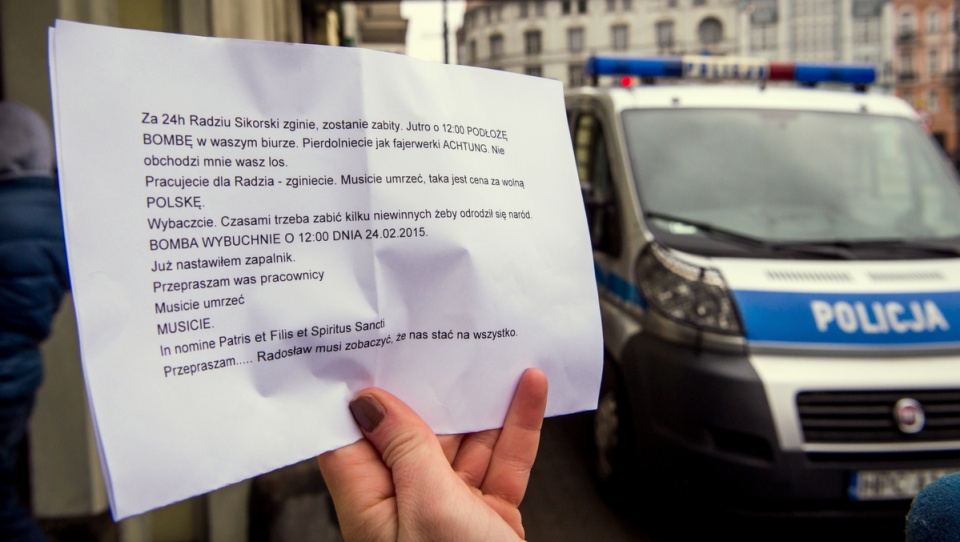 Za 24h Radziu Sikorski zginie, zostanie zabity. Jutro o 12:00 PODŁOŻĘ
BOMBĘ w waszym biurze. Pierdolniecie jak fajerwerki ACHTUNG. Nie
obchodzi mnie wasz los.
Pracujecie dla Radzia - zginiecie. Musicie umrzeć, taka jest cena za wolną
POLSKĘ.
Wybaczcie. Czasami trzeba zabić kilku niewinnych żeby odrodził się naród.
BOMBA WYBUCHNIE O 12:00 DNIA 24.02.2015.
Już nastawiłem zapalnik.
Przepraszam was pracownicy
Musicie umrzeć
MUSICIE.
In nomine Patris et Filis et Spiritus Sancti
Przepraszam..... Radosław musi zobaczyć, że nas stać na wszystko.
POLICJA
POLICJA
FIAT